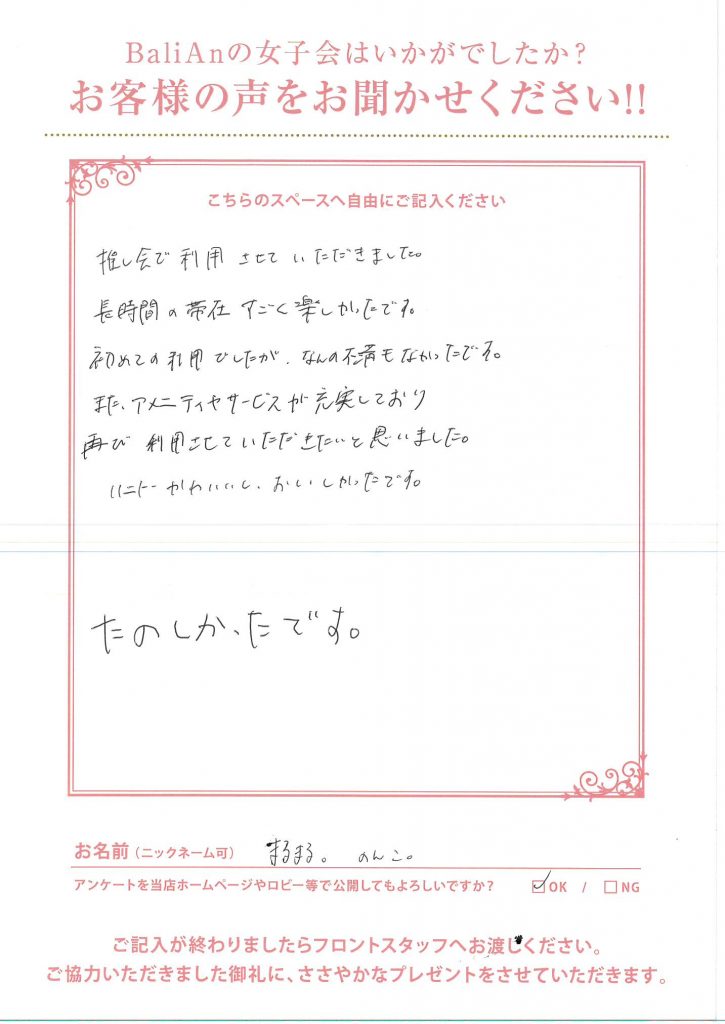 BaliAnの女子会はいかがでしたか?
お客様の声をお聞かせください!!
こちらのスペースへ自由にご記入ください
推し会で利用させていただきました。
長時間の帯在すごく楽しかったです。
初めての利用でしたが、なんの不満もなかったです。
また、アメニティやサービスが充実しており
再び利用させていただきたいと思いました。
ハニトーかわいいし、おいしかったです。
たのしかったです。
お名前(ニックネーム可) まるまる。 のんこ。
アンケートを当店ホームページやロビー等で公開してもよろしいですか? OK / NG
ご記入が終わりましたらフロントスタッフへお渡しください。
ご協力いただきました御礼に、ささやかなプレゼントをさせていただきます。